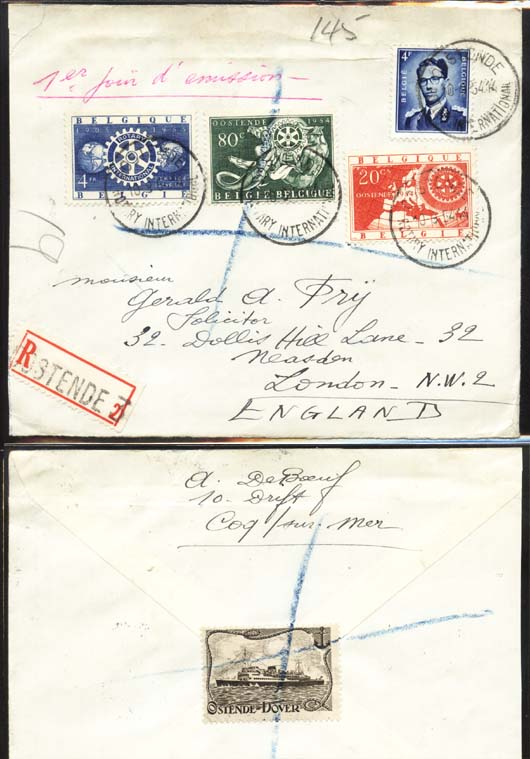 145
1er jour d'emission
4F
BELGIE BELGIQUE
OSTENDE
INTERNATIONAL
BELGIQUE
ROTARY
INTERNATIONAL
4F
BELGIE
OOSTENDE 1954
80c
BELGIE-BELGIQUE
BELGIQUE
20c
OOSTENDE
BELGIE
ROTARY INTERNATIONAL
monsieur
Gerald A. Prÿ
Solicitor
32- Dollis Hill Lane - 32
Neasden
London - N.W.2
ENGLAND
R
OOSTENDE
2
A. DeBœuf
10. Drift
Coq/sur-mer
OSTENDE-DOVER